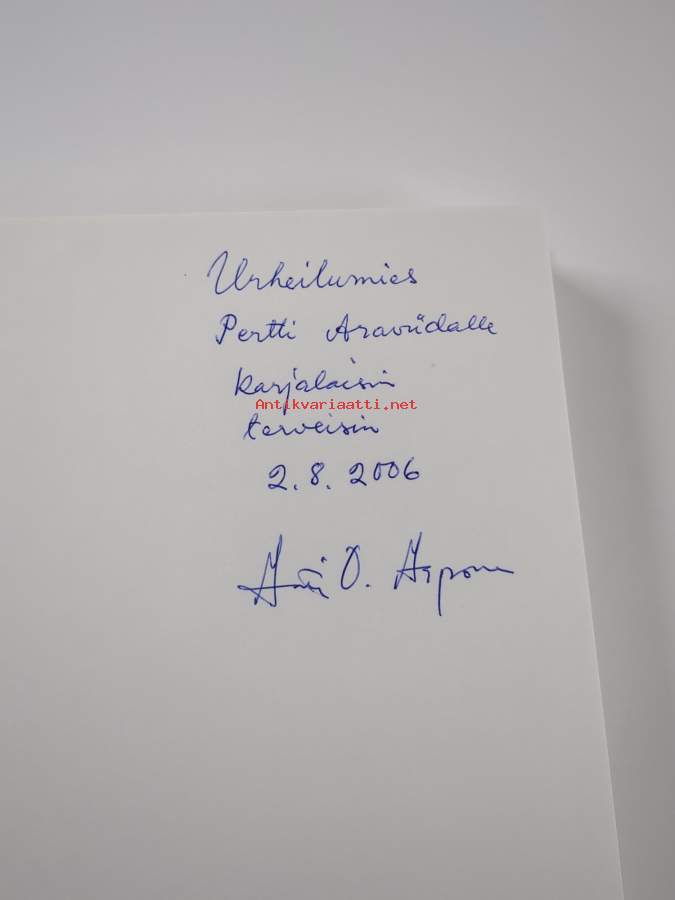 Urheilumies
Pertti Araviidalle
karjalaisin
Antikvariaatti.net
terveisin
2.8.2006
O.